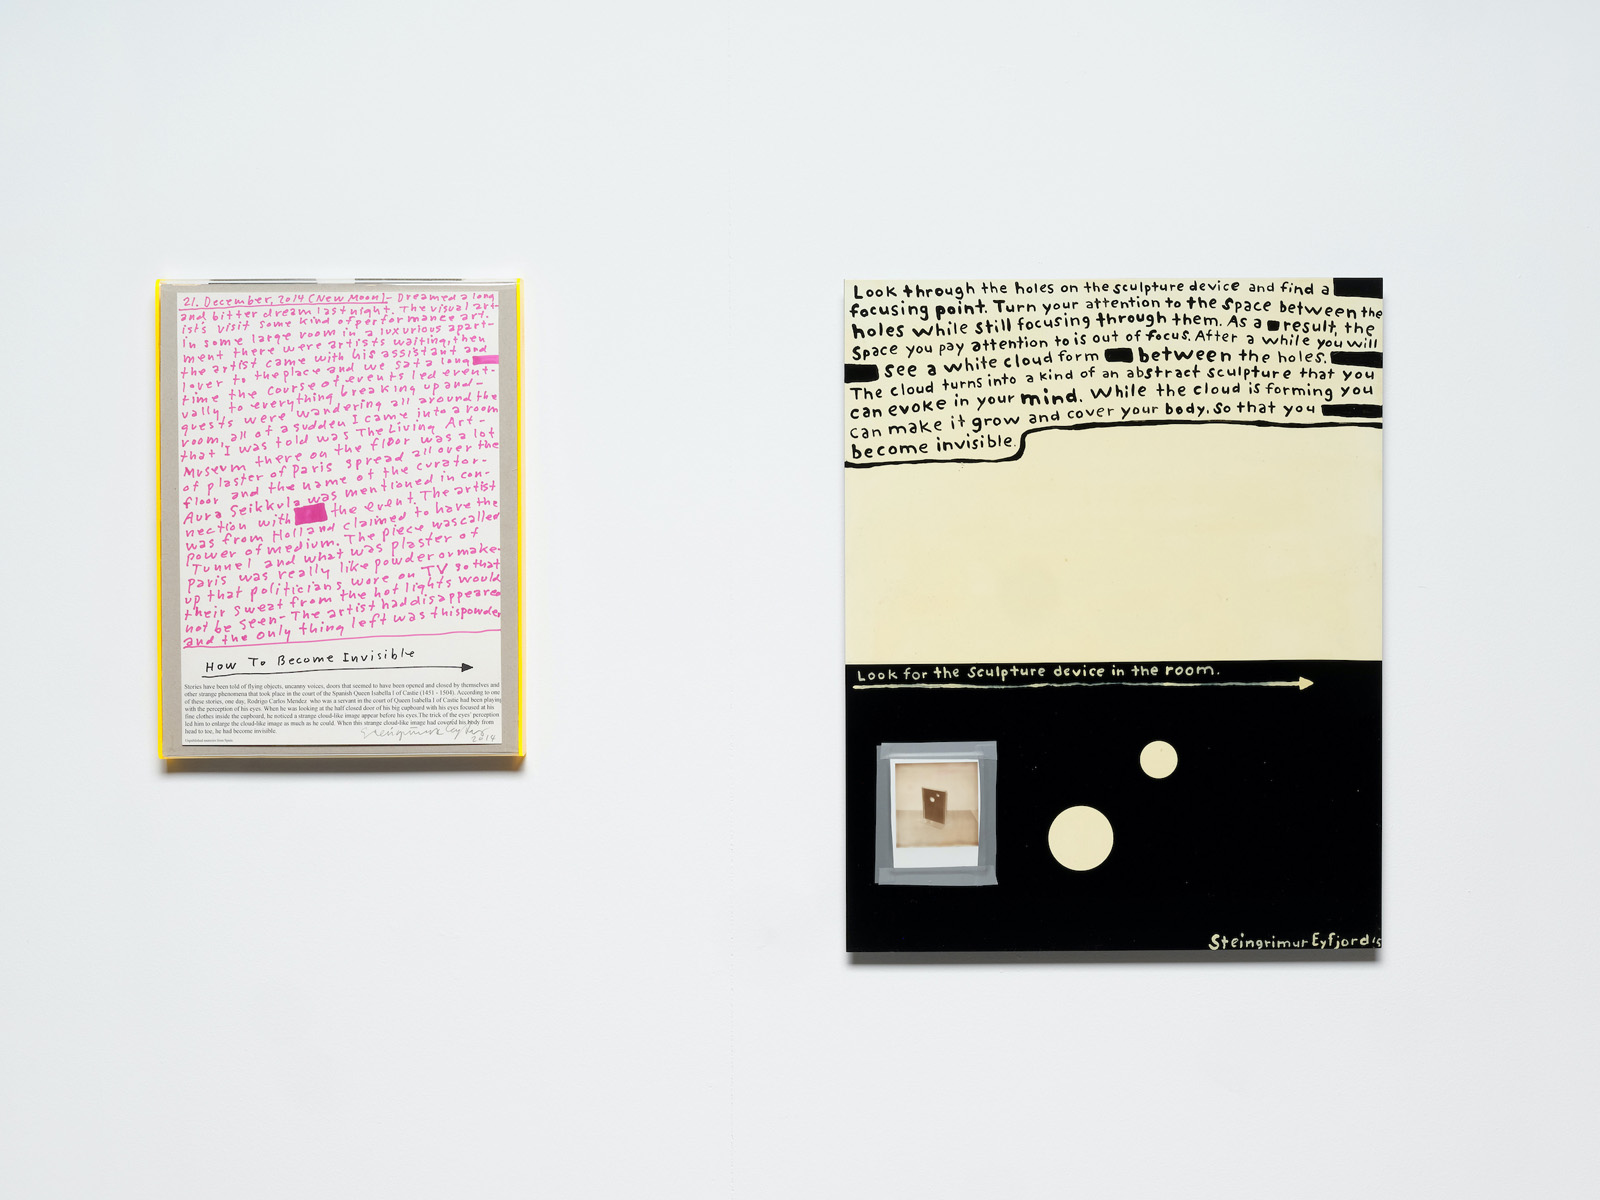 21. December, 2014 (New Moon)- Dreamed a long
and bitter dream last night. The visual art-
ist's visit some kind of performance art.
in some large room in a luxurious apart-
ment there were artists waiting, then
the artist came with his assistant and
lover to the place and we sat a long
time the course of events led event-
vally, to everything breaking up and-
guests were wandering all around the
room, all of a sudden I came into a room
that I was told was The Living Art-
Museum there on the floor was a lot
of plaster of Paris spread all over the
floor and the name of the curator-
Aura Seikkula was mentioned in con-
nection with the event. The artist
was from Holland claimed to have the
power of medium. The piece was called
Tunnel and what was plaster of
paris was really like powder or make-
up that politicians wore on TV so that
their sweat from the hot lights would
not be seen- The artist had disappeared
and the only thing left was this powder
How To Become Invisible
Stories have been told of flying objects, uncanny voices, doors that seemed to have been opened and closed by themselves and
other strange phenomena that took place in the court of the Spanish Queen Isabella I of Castie (1451 - 1504). According to one
of these stories, one day, Rodrigo Carlos Mendez who was a servant in the court of Queen Isabella I of Castie had been playing
with the perception of his eyes. When he was looking at the half closed door of his big cupboard with his eyes focused at his
fine clothes inside the cupboard, he noticed a strange cloud-like image appear before his eyes.The trick of the eyes' perception
led him to enlarge the cloud-like image as much as he could. When this strange cloud-like image had covered his body from
head to toe, he had become invisible.
2014
Look through the holes on the sculpture device and find a
focusing point. Turn your attention to the Space between the
holes while still focusing through them. As a result, the
Space you pay attention to is out of focus. After a while you will
See a white cloud form between the holes.
The cloud turns into a kind of an abstract sculpture that you
can evoke in your mind. While the cloud is forming you
can make it grow and cover your body. So that you
become invisible.
Look for the Sculpture device in the room.
Steingrimur Eyfjord 15